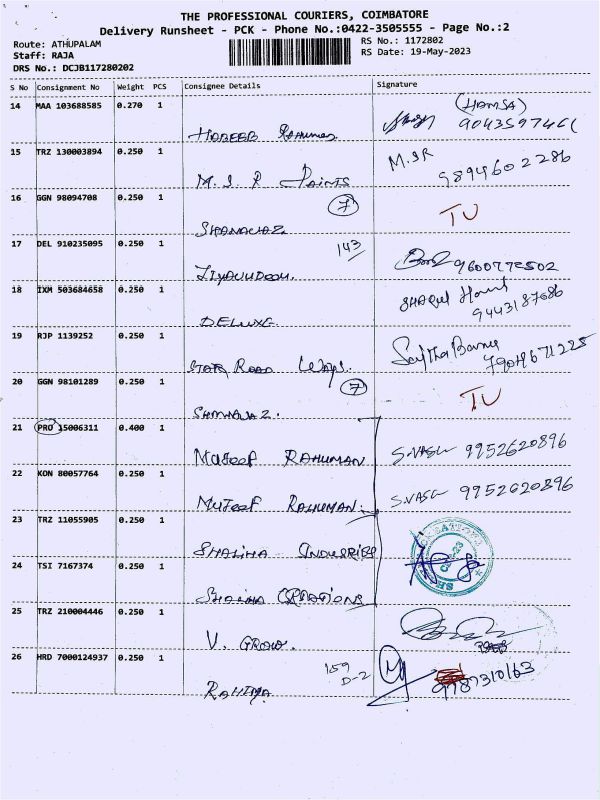 THE PROFESSIONAL COURIERS, COIMBATORE
Delivery Runsheet - PCK - Phone No.:0422-3505555 - Page No.:2
Route: ATHUPALAM
RS No.: 1172802
Staff: RAJA
RS Date: 19-May-2023
DRS No.: DCJB117280202
S No Consignment No Weight PCS Consignee Details Signature
14 MAA 103688585 0.270 1
(HAMSA)
HABEEB
15 TRZ 130003894 0.250 1
M.I.R
9894602286
M.I.R Paints
16 GGN 98094708 0.250 1
7
TU
SHANAVAZ
17 DEL 910235095 0.250 1
143
9600772502
18 IXM 503684658 0.250 1
9443187686
DELUXE
19 RJP 1139252 0.250 1
STAR ROAD Ways.
20 GGN 98101289 0.250 1
7
TU
21 PRO 15006311 0.400 1
RAHUMAN
S.VASU 9952620896
22 KON 80057764 0.250 1
MUJEEF RAHUMAN
S.VASU 9952620896
23 TRZ 11055905 0.250 1
SHALIMA INDUSTRIES
24 TSI 7167374 0.250 1
SHALIMA CREATIONS
25 TRZ 210004446 0.250 1
V. GROW.
26 HRD 7000124937 0.250 1
159
D-2
M
9787310163
RAHIMA